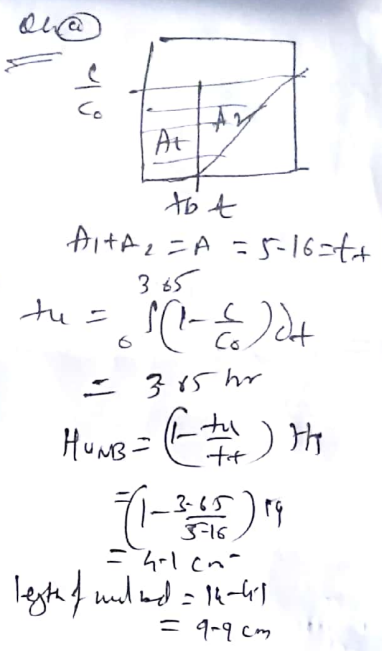 (a)
C
Co
A1
A2
tb t
A1+A2 = A = 5-16 = tt
3 65
tu = ∫(1- C/Co) dt
0
= 3 65 hr
HUNB = (1- tu/tt) HT
= (1- 3-65/5-16) 14
= 4-1 cm
length of used bed = 14-4-1
= 9-9 cm